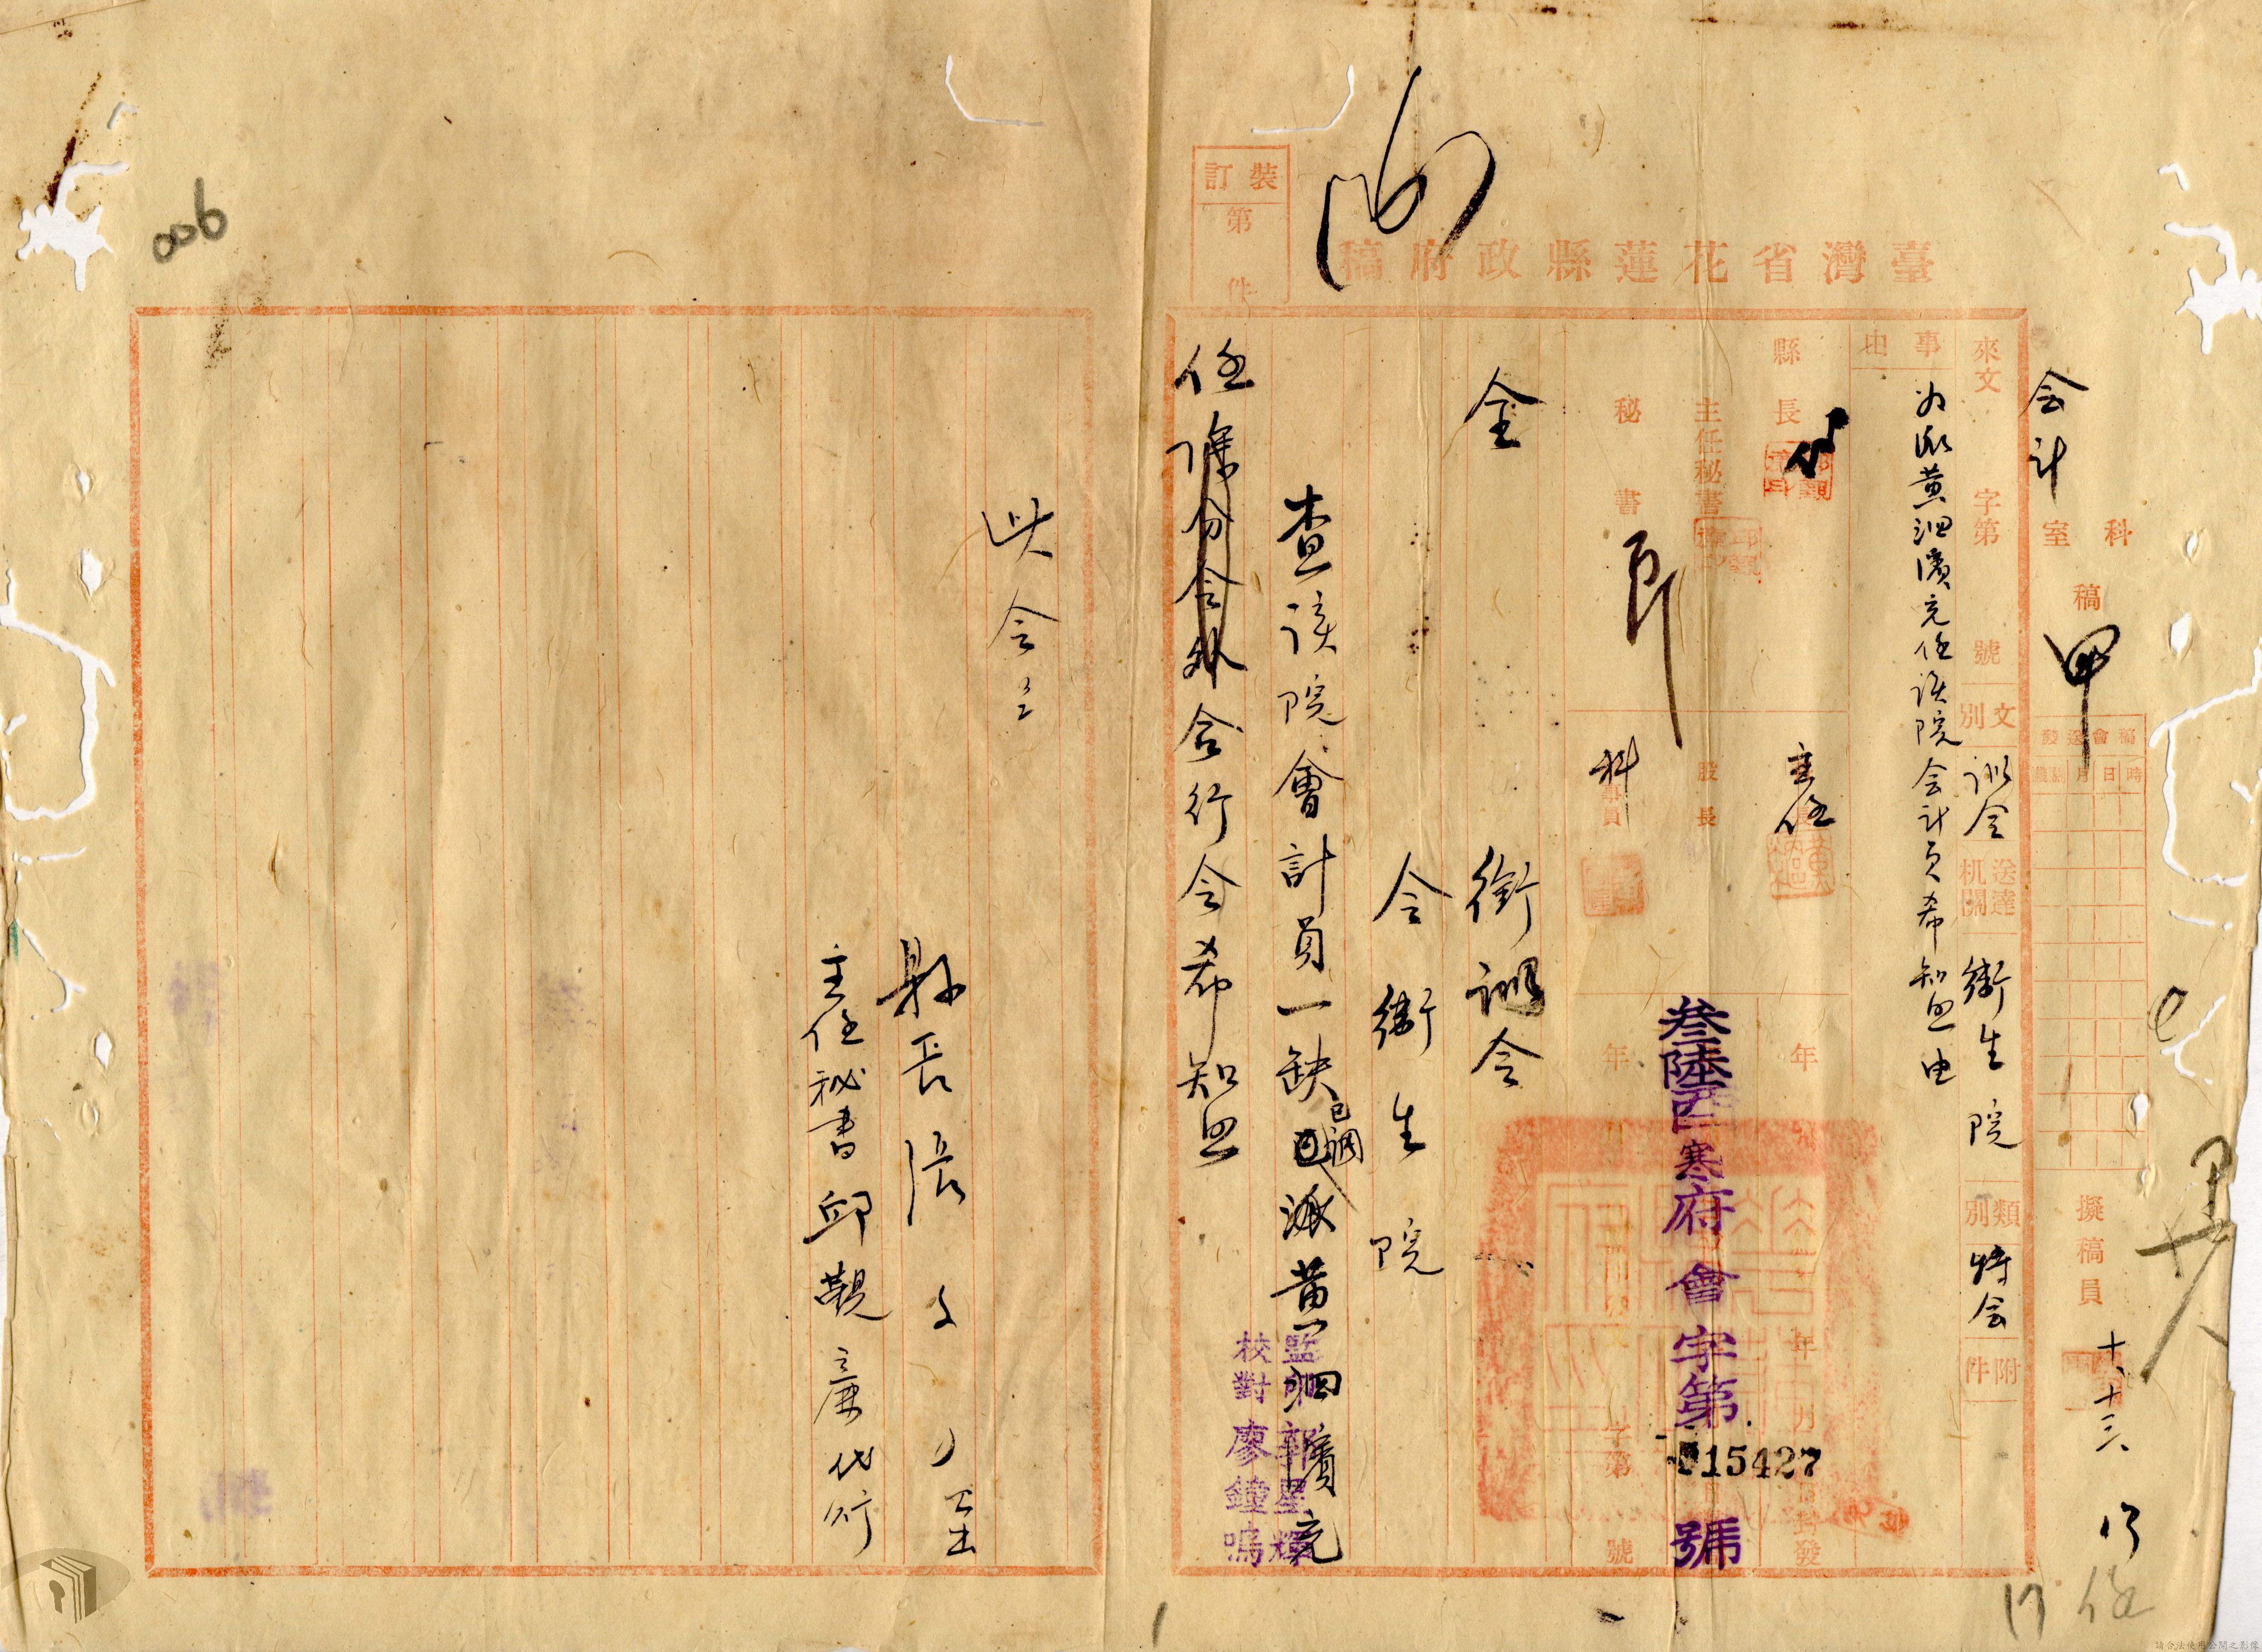 006
臺灣省花蓮縣政府稿
裝訂第 件
会計
室 科
稿
甲
稿會送發
時日月
擬稿員
十、十三、
來文 字第 號
文別 訓令
送達机關 衛生院
類別 特会
附件
事由
為派黃泗濱充任該院会計員希知照由
縣長
主任秘書
秘書
主任
股長
科員
年
叁陸酉寒府會字第015427號
全 銜訓令
令衛生院
查該院會計員一缺已調派黃泗濱充
任除分令外合行令希知照
此令
縣長張文
主任秘書邱觀 代行
監印郭星輝
校對廖鐘鳴
17
請合法使用公開之影像